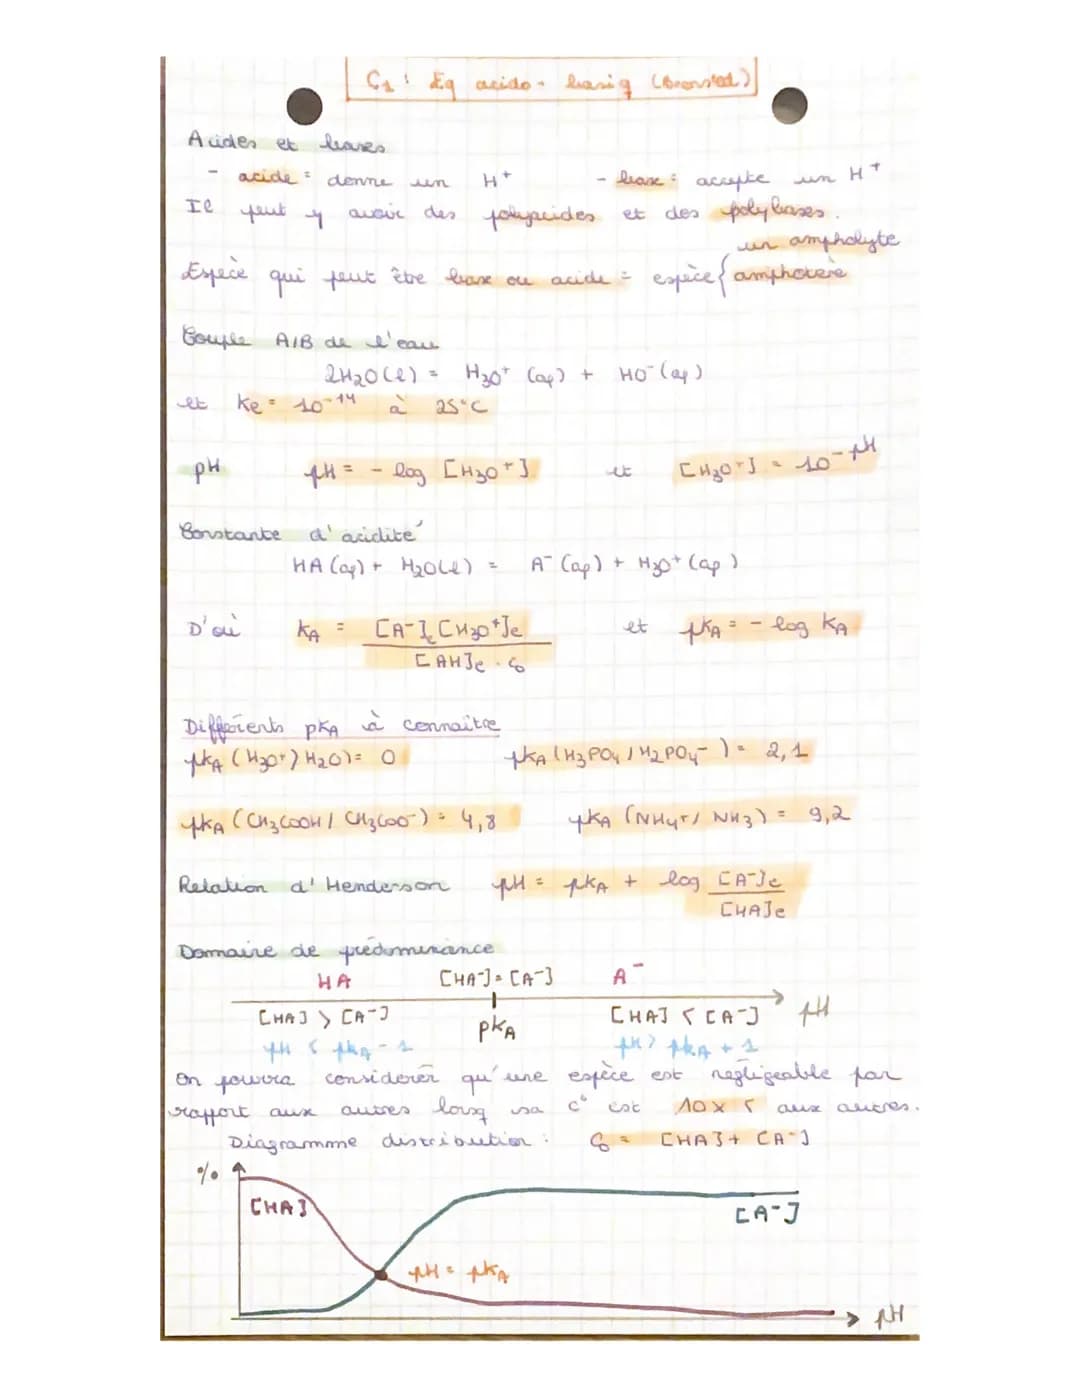 C1 : Eq acido-basiq (Bronsted)
Acides et bases
- acide = donne un H+ - base = accepte un H+
Il peut y avoir des polyacides et des polybases.
un ampholyte
Espèce qui peut être base ou acide = espèce { amphotère
Couple A/B de l'eau
2H2O(l) = H3O+ (aq) + HO- (aq)
et Ke = 10-14 à 25°C
pH pH = - log [H3O+] et [H3O+] = 10-pH
Constante d'acidité
HA (aq) + H2O(l) = A- (aq) + H3O+ (aq)
D'où KA = [A-]e [H3O+]e et pKA = - log KA
[AH]e . C0
Différents pKA à connaître
pKA (H3O+/H2O) = 0 pKA (H3PO4 / H2PO4-) = 2,1
pKA (CH3COOH / CH3COO-) = 4,8 pKA (NH4+/ NH3) = 9,2
Relation d'Henderson pH = pKA + log [A-]e
[HA]e
Domaine de prédominance
HA [HA-] = [A-] A-
[HA] > [A-] pKA [HA] < [A-] pH
pH < pKA - 1 pH > pKA + 1
On pourra considérer qu'une espèce est négligeable par
rapport aux autres lorsq sa c° est 10 x < aux autres.
Diagramme distribution : C0 = [HA] + [A-]
%
[HA] [A-]
pH = pKA
pH